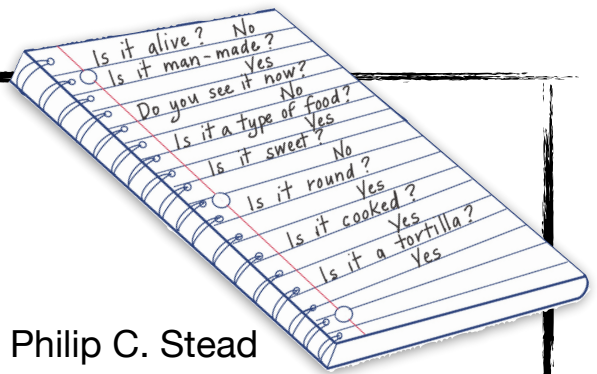 Is it alive? No
Is it man-made?
Yes
Do you see it now?
No
Is it a type of food?
Yes
Is it sweet?
No
Is it round?
Yes
Is it cooked?
Yes
Is it a tortilla?
Yes
Philip C. Stead